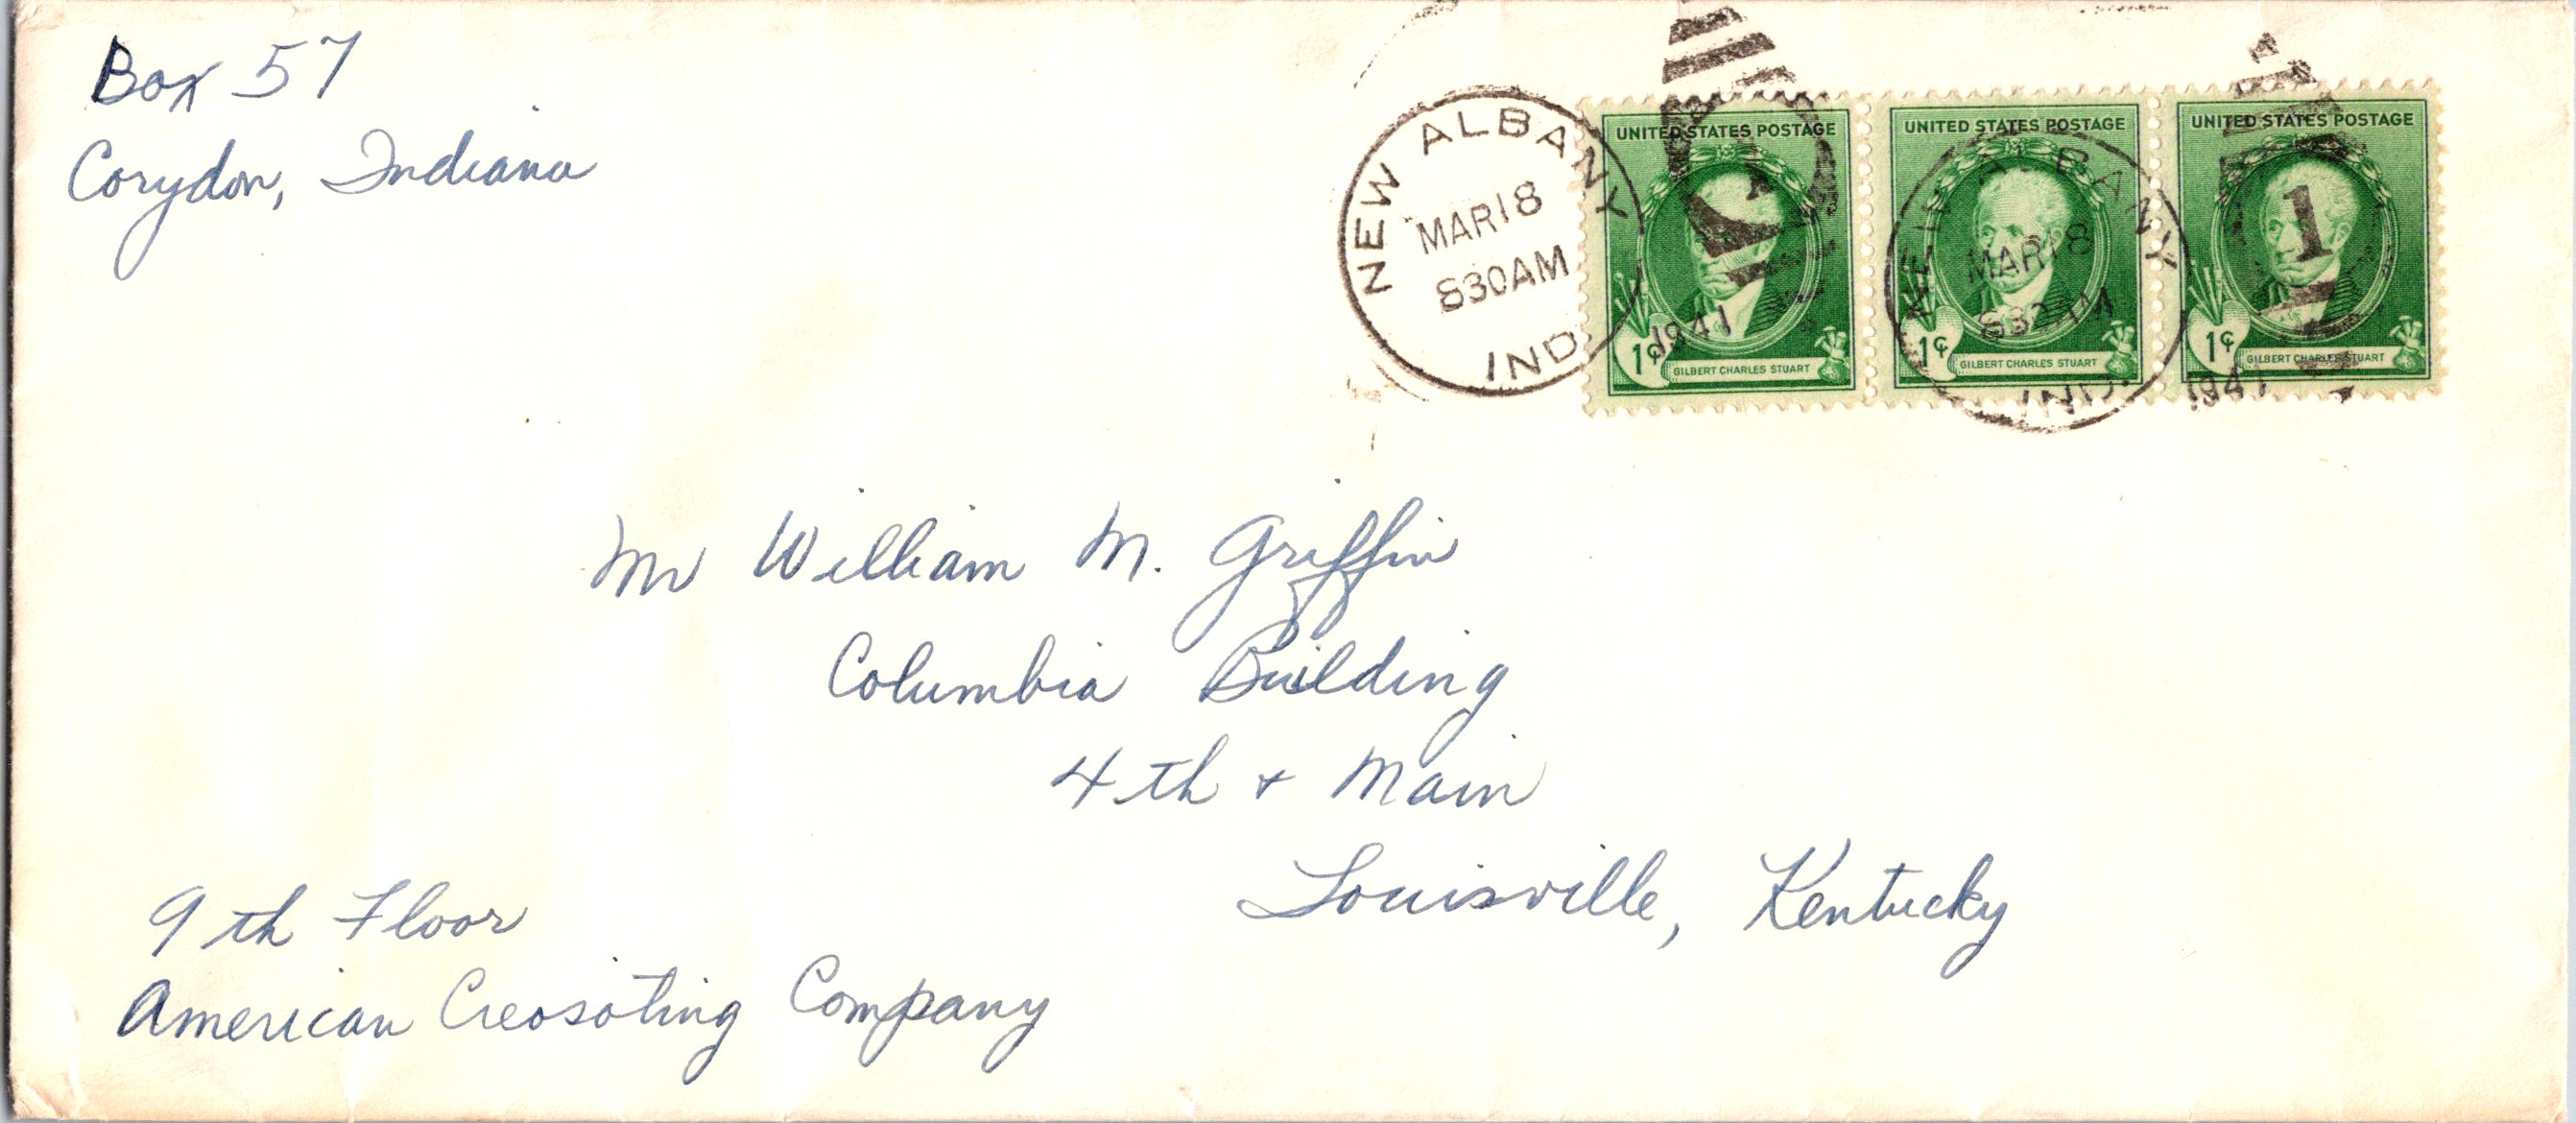 Box 57
Corydon, Indiana
NEW ALBANY
MAR 18
830AM
1941
IND.
UNITED STATES POSTAGE
1¢
GILBERT CHARLES STUART
UNITED STATES POSTAGE
1¢
GILBERT CHARLES STUART
UNITED STATES POSTAGE
1¢
GILBERT CHARLES STUART
NEW ALBANY
MAR 18
830AM
1941
IND.
1
Mr William M. Griffin
Columbia Building
4th & Main
Louisville, Kentucky
9th Floor
American Creosoting Company